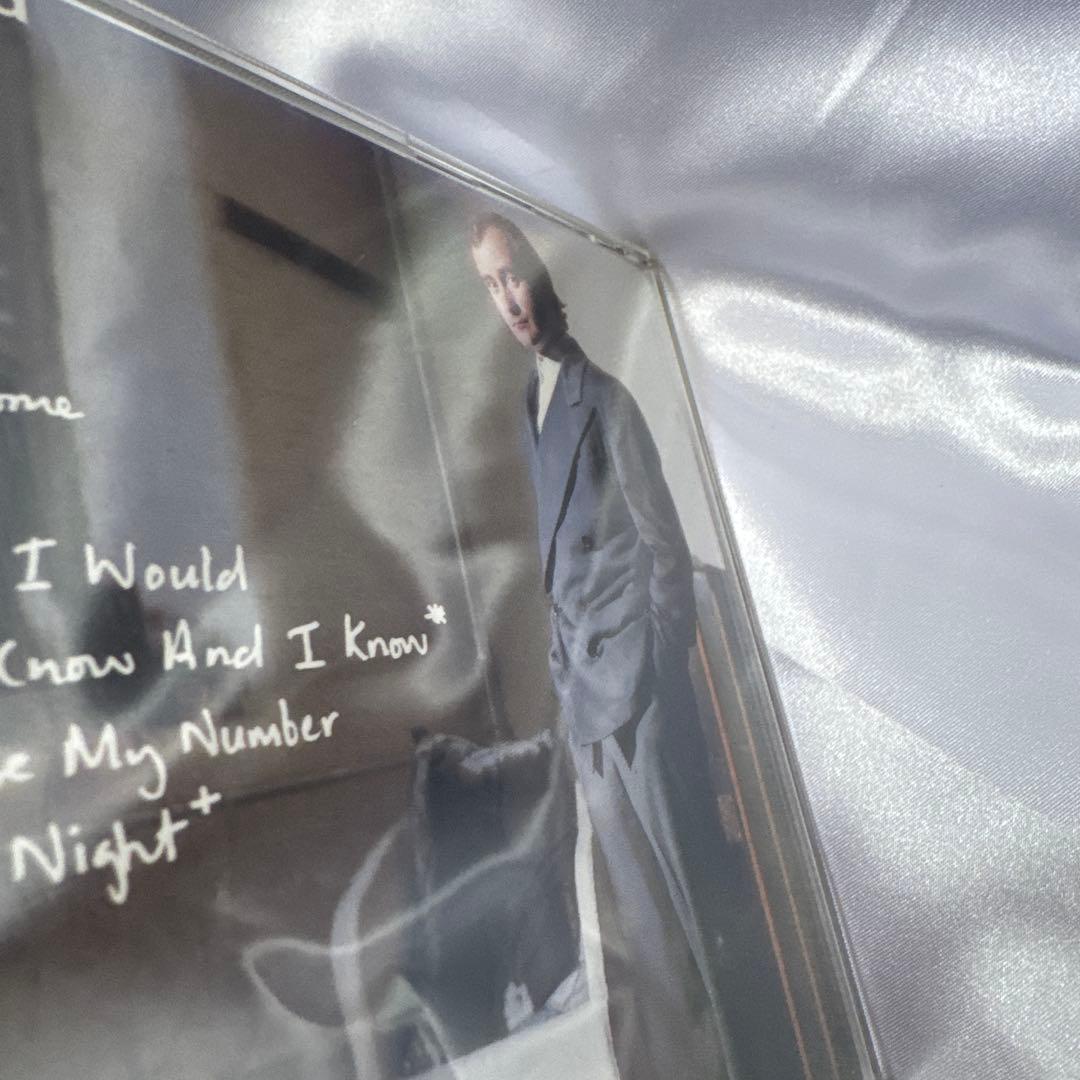 I Would
Know And I Know*
My Number
Night+